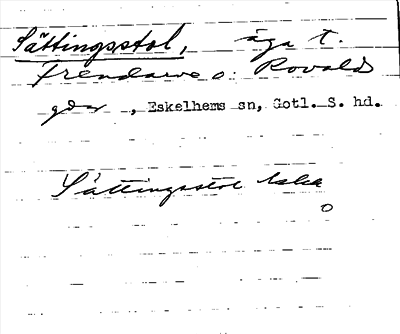 Sättingsstol, äga t.
Frendarve o. Rovalds
gdar, Eskelhems sn, Gotl. S. hd.
Sättingsstol